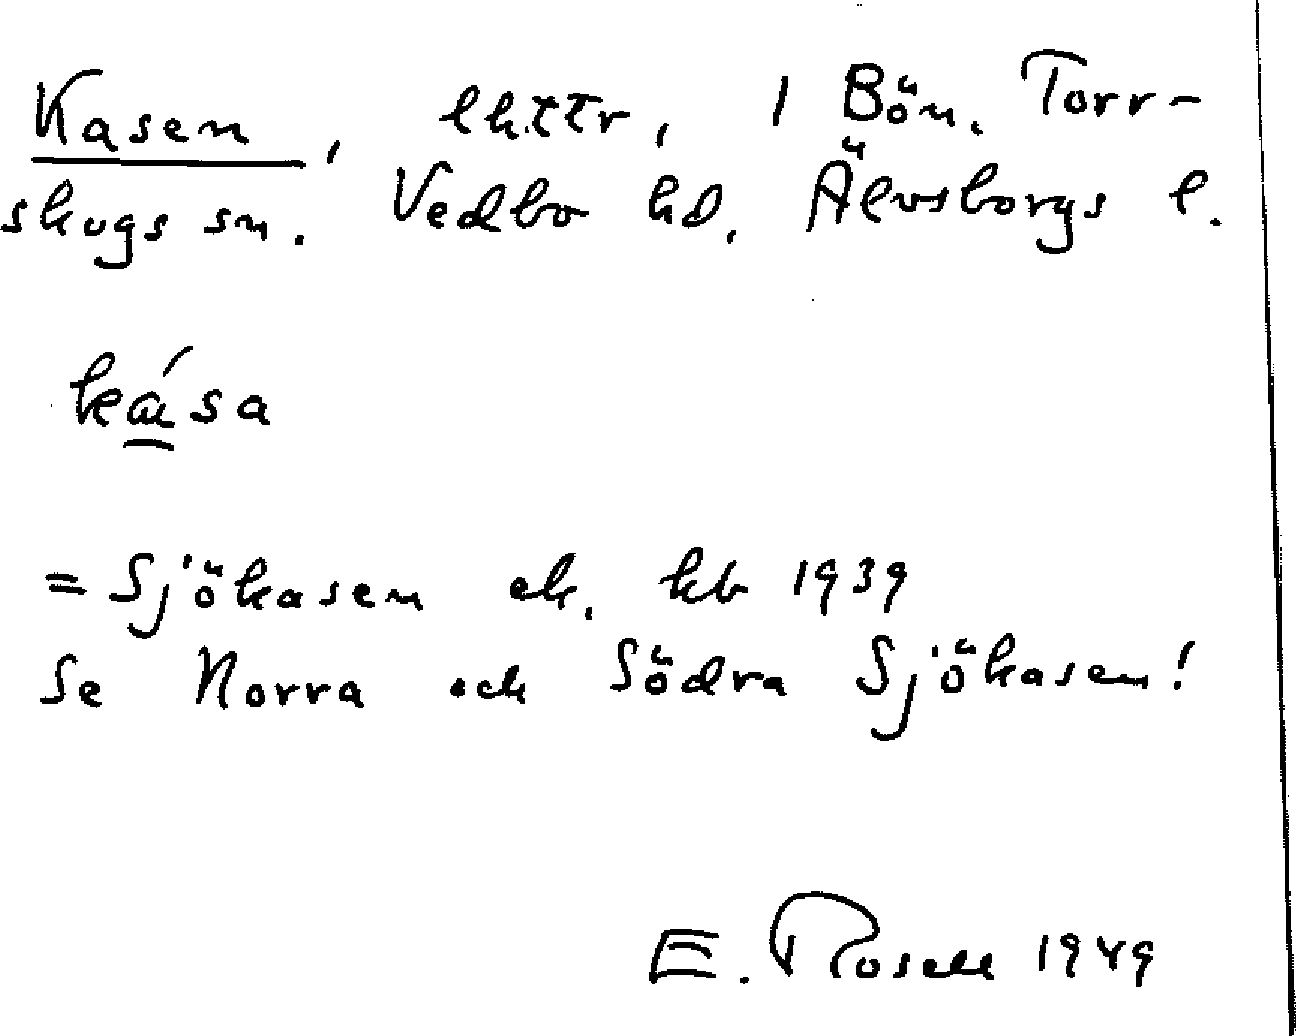 Kasen, lht:er, 1 Bön, Torr-
skogs sn. Vedbo hd, Älvsborgs l.
kása
= Sjökasen ek. kb 1939
Se Norra och Södra Sjökasen!
E. Rosell 1949